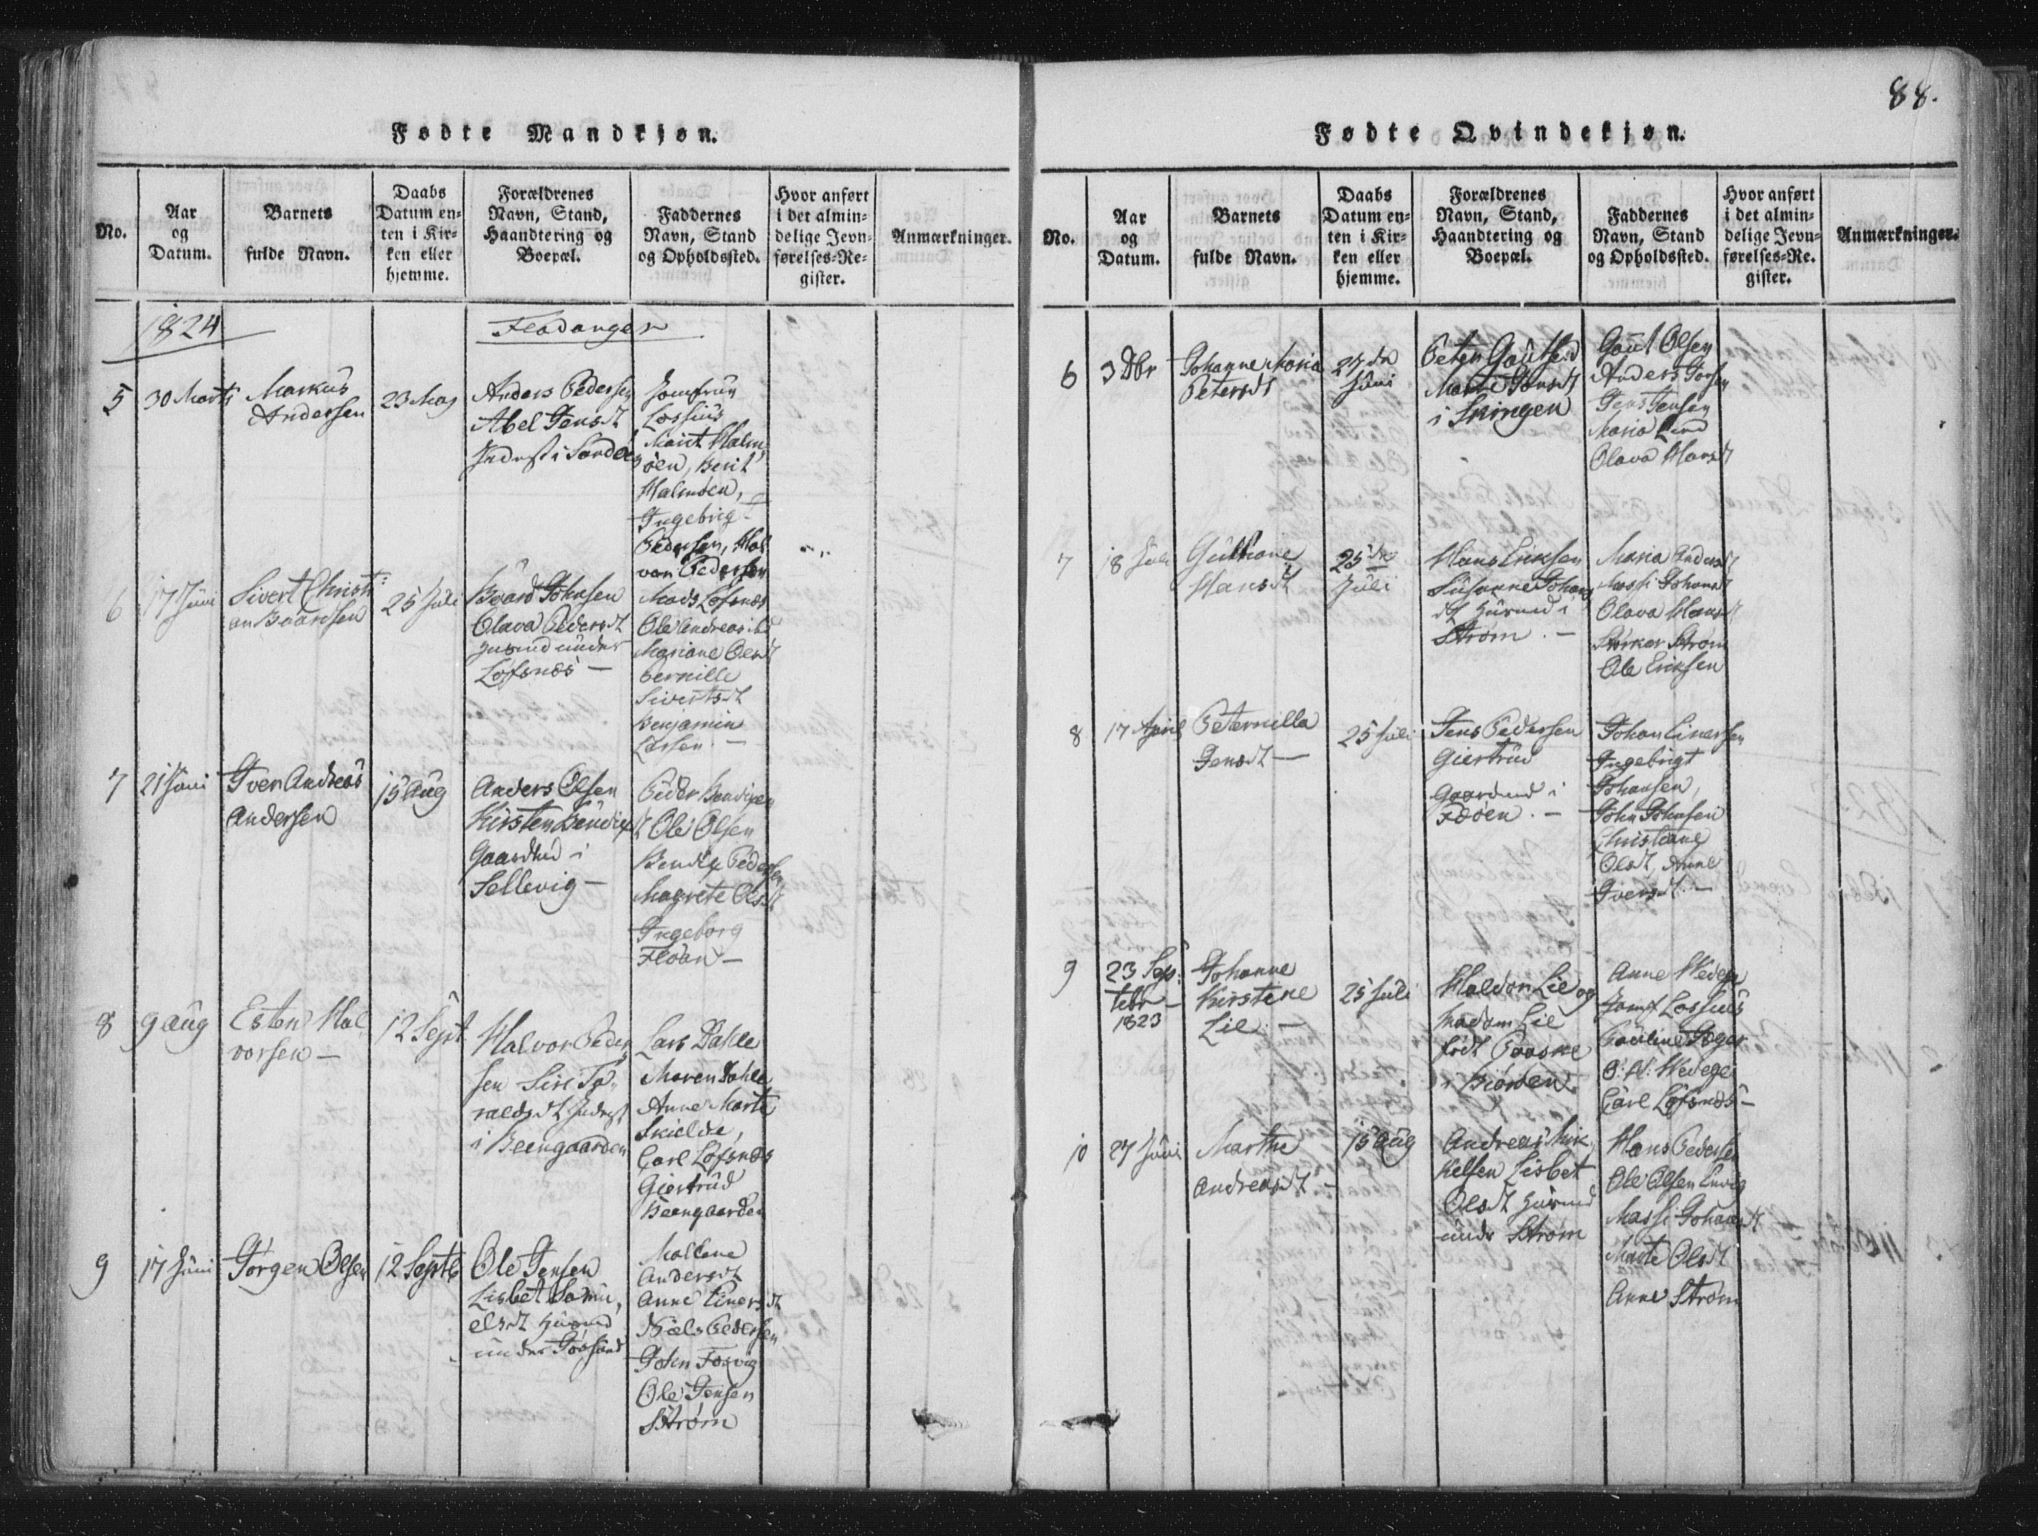 88.
Fødte Mandkjøn.
No.
Aar
og
Datum.
Barnets
fulde Navn.
Daabs
Datum en-
ten i Kir-
ken eller
hjemme.
Forældrenes
Navn, Stand,
Haandtering og
Boepæl.
Faddernes
Navn, Stand
og Opholdssted.
Hvor anført
i det almin-
delige Jevn-
førelses-Re-
gister.
Anmærkninger.
1824
Fladanger
5
30 Marts
Markus
Andersen
23 Maj
Anders Pedersen
Abel Jensdt
Inderst i Sandet
Jomfrue
Lossius
Marit Halm,
öen, Berit
Halmöen,
Ingebrigt
Pedersen, Hal
vor Pedersen
6
17 Juni
Sivert Christi
an Baardsen
25 Juli
Baard Johnsen
Olava Pedersdt
Husmd under
Löfsnæs —
Mads Löfsnæs
Ole Andreas
Mariane Olsdt
Pernille
Sivertsdt
Benjamin
Larsen. —
7
21 Juni
Iver Andreas
Andersen
15 Aug
Anders Olsen
Kirsten Bendixdt
Gaardmd i
Sellevig —
Peder Bendixen
Ole Olsen
Bendix Pedersen
Magrete Olsdt
Ingeborg
Flöan —
8
9 Aug
Esten Hal
vorsen —
12 Sept
Halvor Peder
sen Siri To,
raldsdt Inderst
i Beengaarden
Lars Dahle
Maren Dahle
Anne Marte
Skielde,
Carl Löfsnæs
Giertrud
Beengaarden
9
17 Juni
Jörgen Olsen
12 Septb
Ole Jensen
Lisbet Samu,
elsdt Husmd
under Jössund
Mallene
Andersdt
Anne Einersdt
Niels Pedersen
John Fosvig
Ole Jensen
Ström
Fødte Qvindekjøn.
No.
Aar
og
Datum.
Barnets
fulde Navn.
Daabs
Datum en-
ten i Kir-
ken eller
hjemme.
Forældrenes
Navn, Stand,
Haandtering og
Boepæl.
Faddernes
Navn, Stand
og Opholdssted.
Hvor anført
i det almin-
delige Jevn-
førelses-Re-
gister.
Anmærkninger.
6
3 Dbr
Johanne Maria
Petersdt
27 de
Juni
Peter
Marte Jonsdt
i Sningen
Gaut Olsen
Anders Jonsen
Jens Jensen
Maria Lind
Olava Hansdt
7
18 Juli
Gulliane
Hansdt
25 de
Juli
Hans Eriksen
Susanne Johans
dt Husmd i
Ström. —
Maria Andersdt
Massi Johansdt
Olava Hansdt
Störker Ström
Ole Eriksen
8
17 April
Peternilla
Jensdt —
25 Juli
Jens Pedersen
Giertrud
Gaardmd i
Fædöen. —
Johan Einersen
Ingebrigt
Johansen,
John Johnsen
Christiane
Olsdt, Anne
Iversdt. —
9
23 Sep
tebr —
1823
Johanne
Kirstine
Lie. —
25 Juli
Haldor Lie og
Madam Lie
födt Paaske
i Biören.
Anne Wedege
Jomf Lossius
O. N. Wedege
Carl Löfsnæs —
10
27 Juni
Marthe
Andreasdt. —
15 Aug
Andreas Mik,
kelsen Lisbet
Olsdt Husmd
under Ström
Hans Pedersen
Ole Olsen Envig
Massi Johansdt
Marte Olsdt
Anne Ström